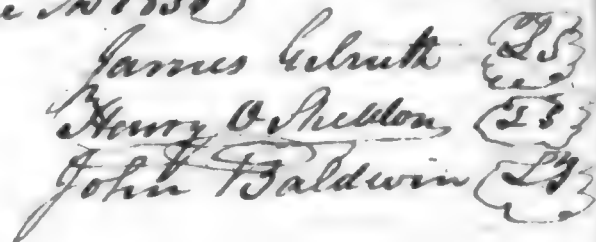 James Gilruth LS
Henry O Sheldon LS
John Baldwin LS